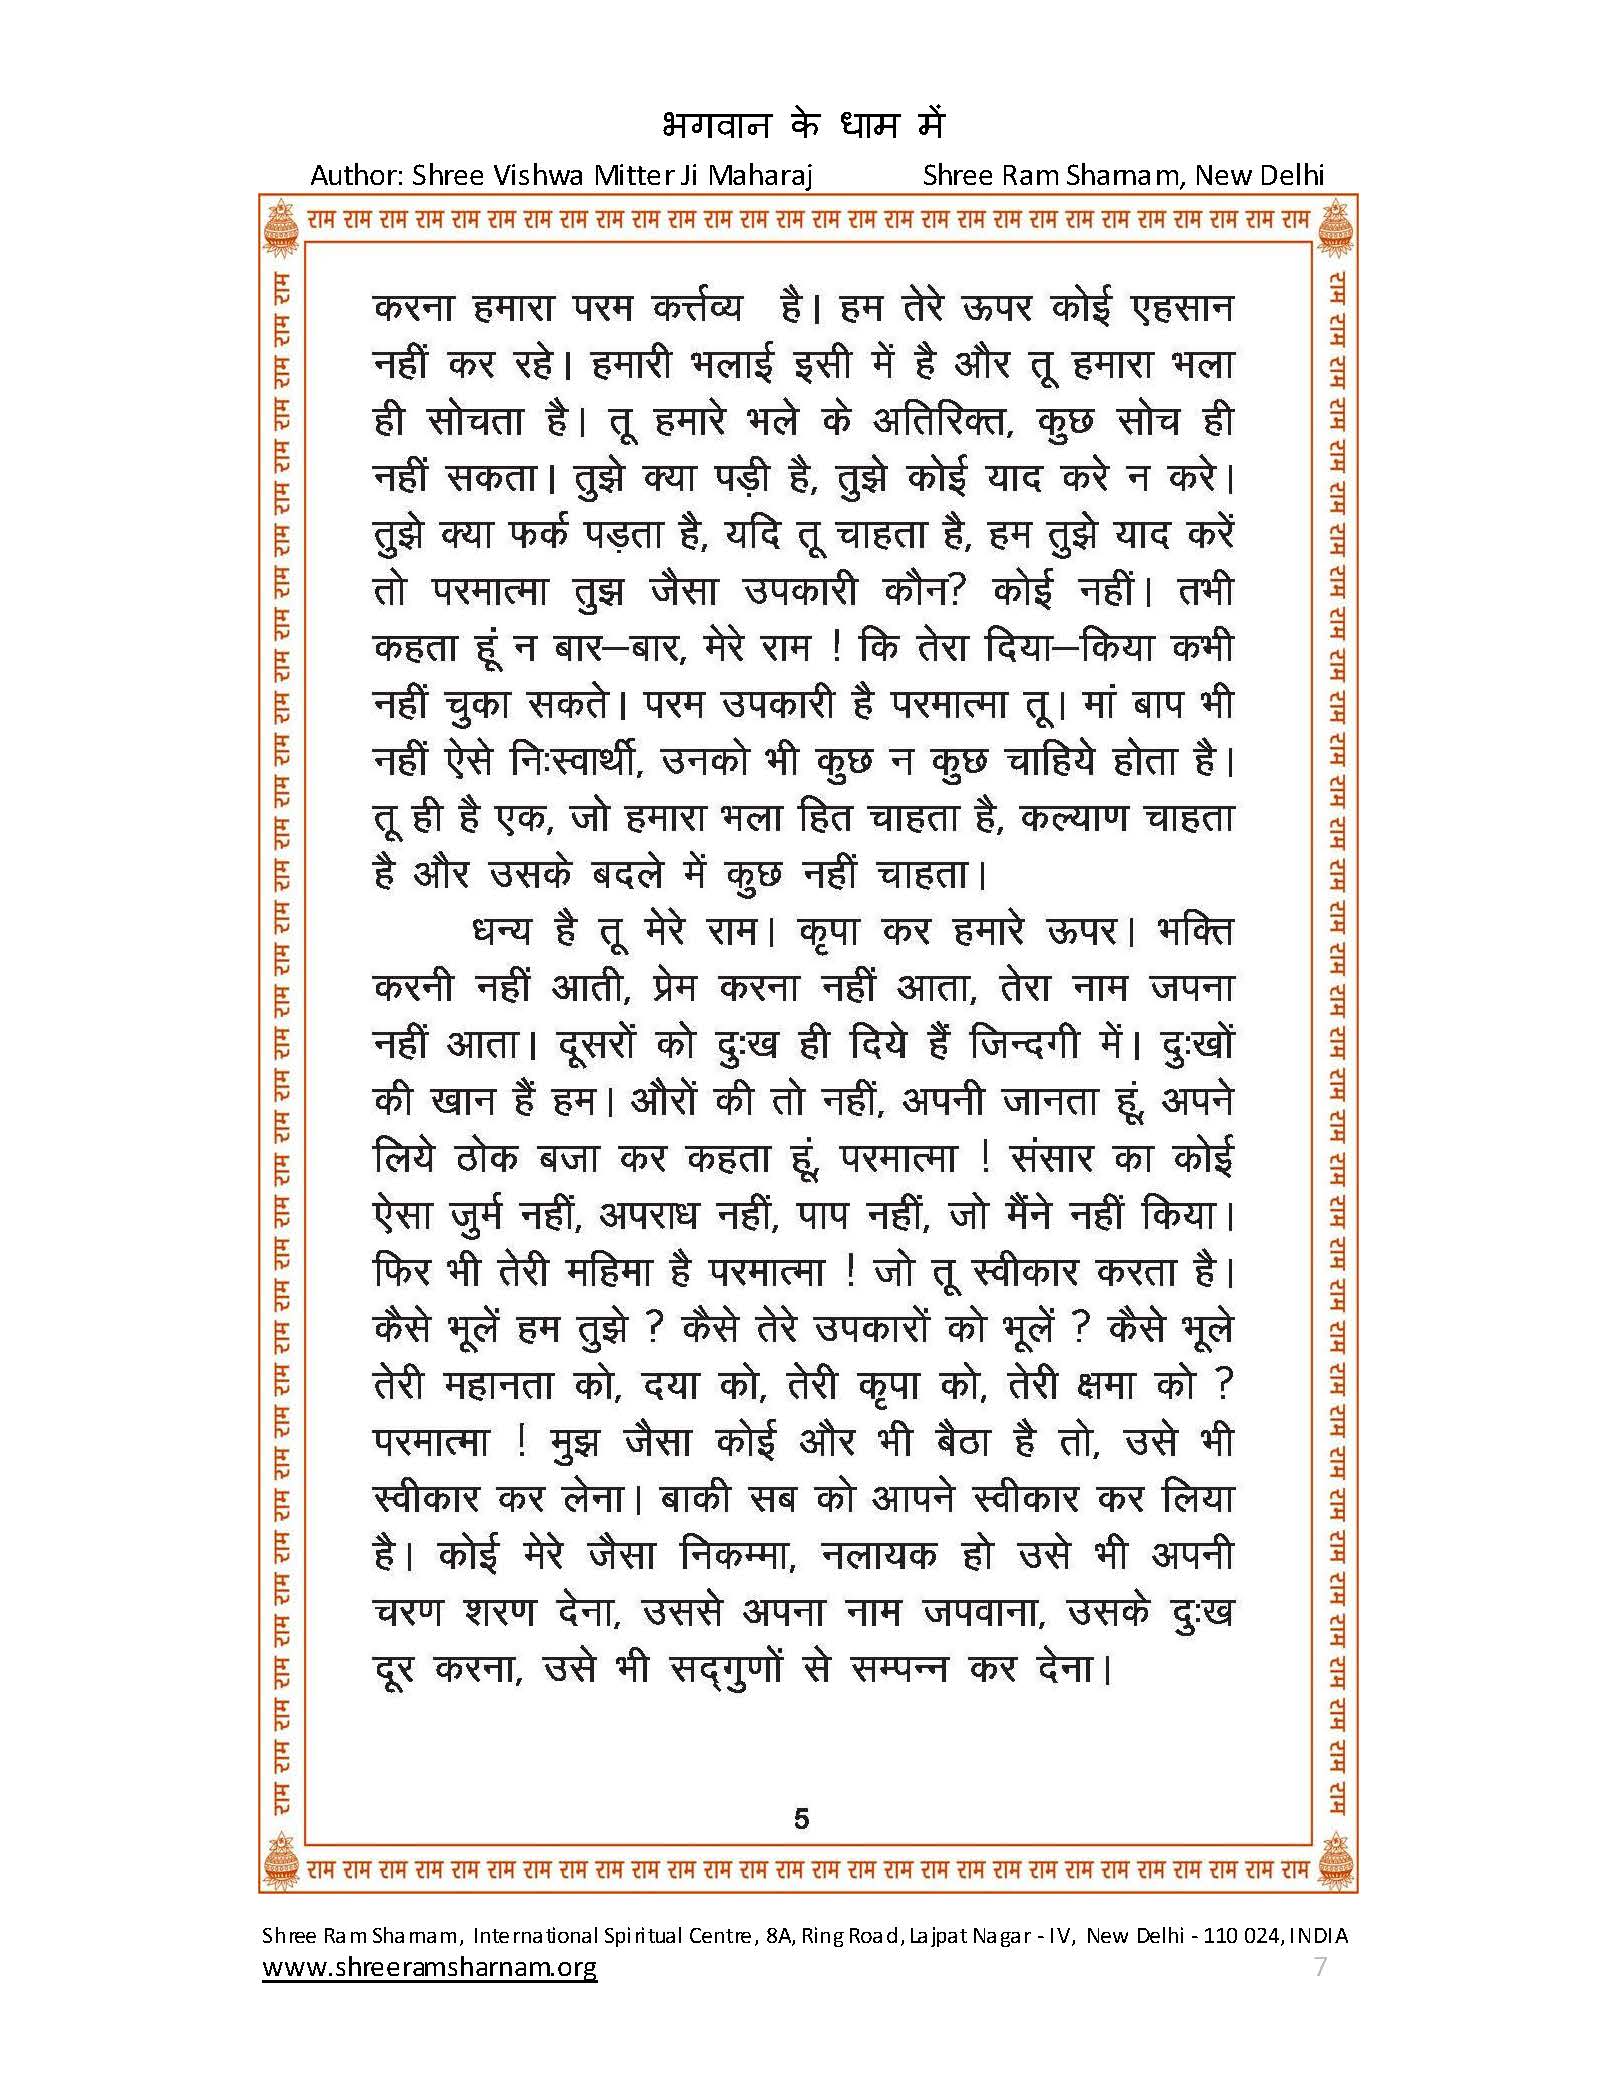 भगवान के धाम में
Author: Shree Vishwa Mitter Ji Maharaj Shree Ram Sharnam, New Delhi
राम राम राम राम राम राम राम राम राम राम राम राम राम राम राम राम राम राम राम राम राम राम राम राम राम राम राम राम
करना हमारा परम कर्त्तव्य है। हम तेरे ऊपर कोई एहसान
नहीं कर रहे। हमारी भलाई इसी में है और तू हमारा भला
ही सोचता है। तू हमारे भले के अतिरिक्त, कुछ सोच ही
नहीं सकता। तुझे क्या पड़ी है, तुझे कोई याद करे न करे।
तुझे क्या फर्क पड़ता है, यदि तू चाहता है, हम तुझे याद करें
तो परमात्मा तुझ जैसा उपकारी कौन? कोई नहीं। तभी
कहता हूं न बार–बार, मेरे राम ! कि तेरा दिया–किया कभी
नहीं चुका सकते। परम उपकारी है परमात्मा तू। मां बाप भी
नहीं ऐसे निःस्वार्थी, उनको भी कुछ न कुछ चाहिये होता है।
तू ही है एक, जो हमारा भला हित चाहता है, कल्याण चाहता
है और उसके बदले में कुछ नहीं चाहता।
धन्य है तू मेरे राम। कृपा कर हमारे ऊपर। भक्ति
करनी नहीं आती, प्रेम करना नहीं आता, तेरा नाम जपना
नहीं आता। दूसरों को दुःख ही दिये हैं जिन्दगी में। दुःखों
की खान हैं हम। औरों की तो नहीं, अपनी जानता हूं, अपने
लिये ठोक बजा कर कहता हूं, परमात्मा ! संसार का कोई
ऐसा जुर्म नहीं, अपराध नहीं, पाप नहीं, जो मैंने नहीं किया।
फिर भी तेरी महिमा है परमात्मा ! जो तू स्वीकार करता है।
कैसे भूलें हम तुझे ? कैसे तेरे उपकारों को भूलें ? कैसे भूले
तेरी महानता को, दया को, तेरी कृपा को, तेरी क्षमा को ?
परमात्मा ! मुझ जैसा कोई और भी बैठा है तो, उसे भी
स्वीकार कर लेना। बाकी सब को आपने स्वीकार कर लिया
है। कोई मेरे जैसा निकम्मा, नलायक हो उसे भी अपनी
चरण शरण देना, उससे अपना नाम जपवाना, उसके दुःख
दूर करना, उसे भी सद्‌गुणों से सम्पन्न कर देना।
5
राम राम राम राम राम राम राम राम राम राम राम राम राम राम राम राम राम राम राम राम राम राम राम राम राम राम राम राम
Shree Ram Sharnam, International Spiritual Centre, 8A, Ring Road, Lajpat Nagar - IV, New Delhi - 110 024, INDIA
www.shreeramsharnam.org 7